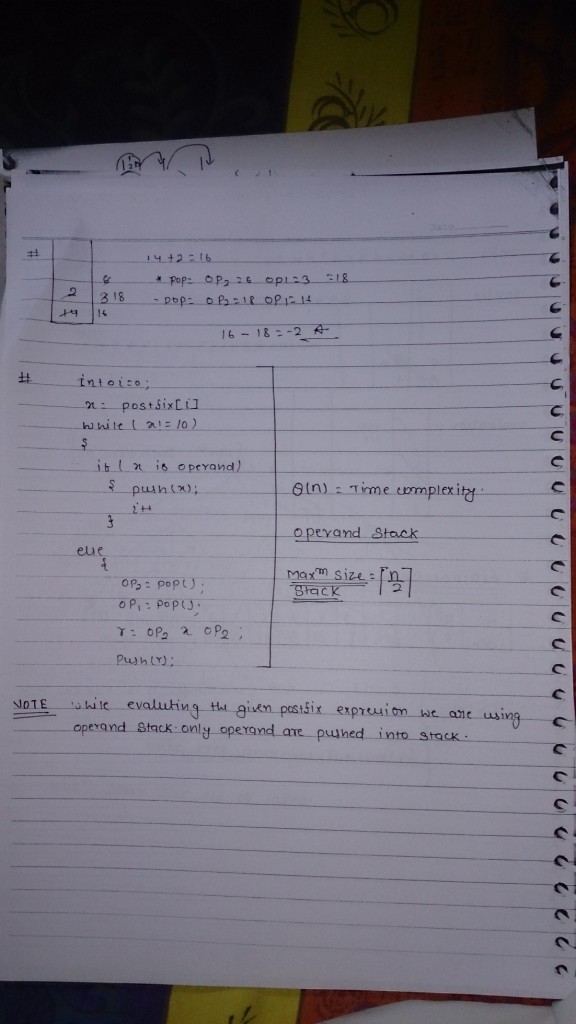 #
14 + 2 = 16
6 * pop = OP2 = 6 OP1 = 3 = 18
2 3 18 - pop = OP2 = 18 OP1 = 16
14 16
16 - 18 = -2 A
# int i=0;
x = postfix[i]
while ( x != 10 )
{
if ( x is operand)
{ push(x);
i++
}
else
{
OP2 = pop();
OP1 = pop();
r = OP2 x OP2 ;
Push(r);
θ(n) = Time complexity.
operand Stack
Maxm Size = ⌈n/2⌉
Stack
NOTE while evaluting the given postfix expression we are using
operand Stack. only operand are pushed into stack.